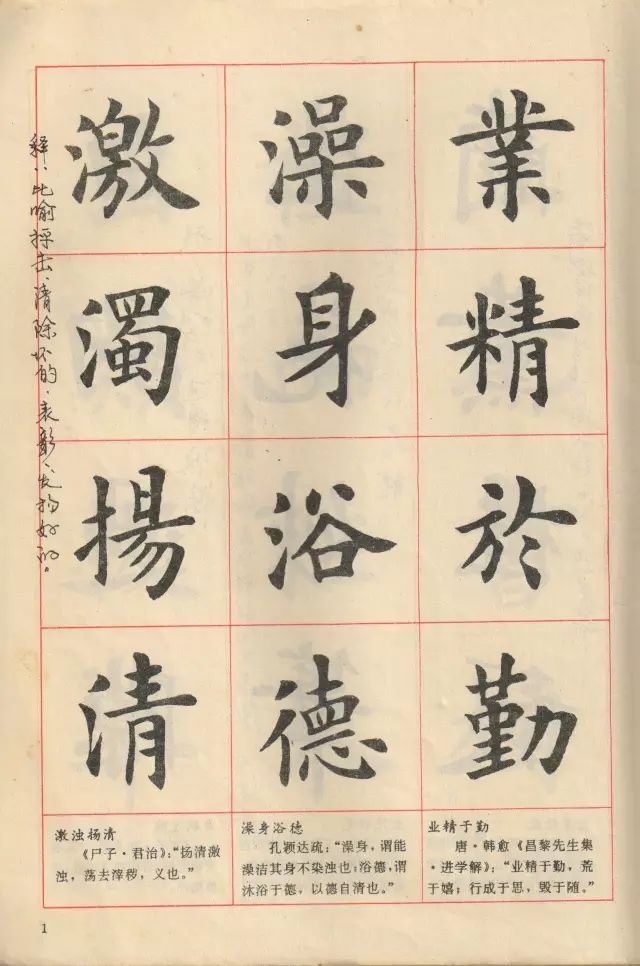 業精於勤
澡身浴德
激濁揚清
释：比喻抨击、清除坏的，表彰、发扬好的。
业精于勤
唐·韩愈《昌黎先生集
·进学解》：“业精于勤，荒
于嬉；行成于思，毁于随。”
澡身浴德
孔颖达疏：“澡身，谓能
澡洁其身不染浊也；浴德，谓
沐浴于德，以德自清也。”
激浊扬清
《尸子·君治》：“扬清激
浊，荡去滓秽，义也。”
1